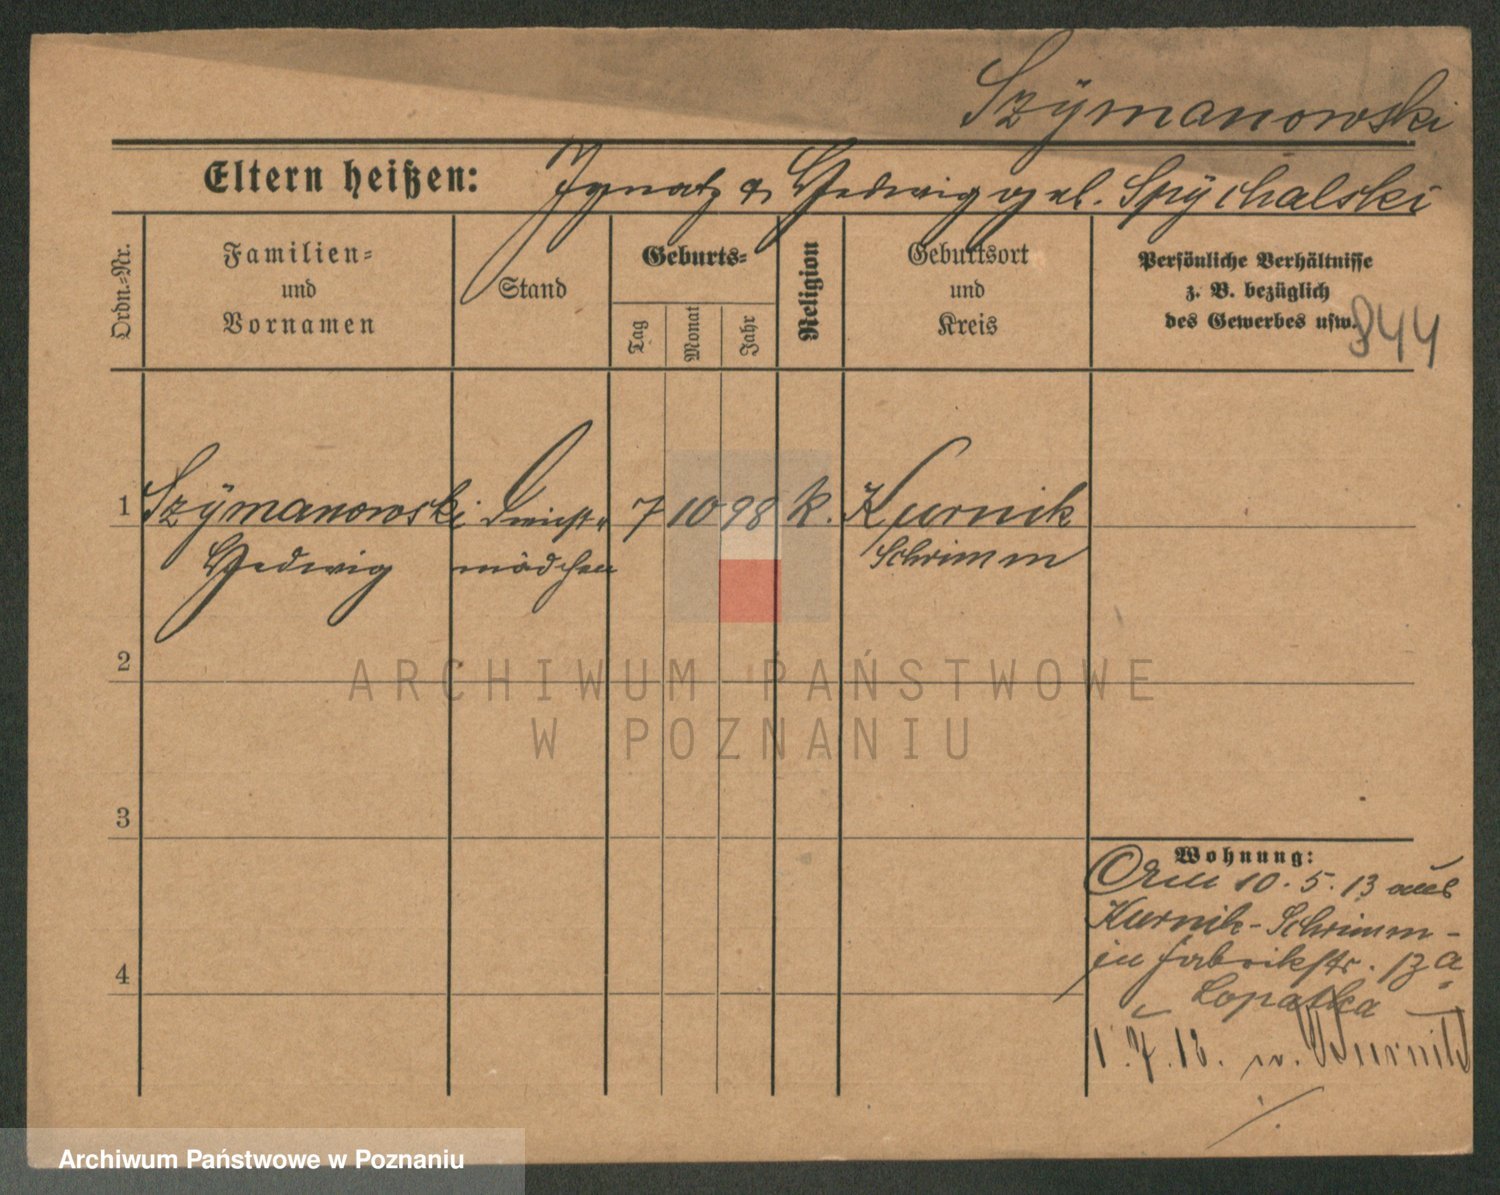 Szÿmanowski
Eltern heißen: Ignatz & Hedwig geb. Spÿchalski
Ordn.-Nr.
Familien-
und
Vornamen
Stand
Geburts-
Tag
Monat
Jahr
Religion
Geburtsort
und
Kreis
Persönliche Verhältnisse
z. B. bezüglich
des Gewerbes usw.
844
1 Szÿmanowski Dienst- 7 10 98 k. Kurnik
Hedwig mädchen Schrimm
2
3
4
Wohnung:
10.5.13 aus
Kurnik-Schrimm-
in Fabrikstr. 13a
Lopatka
1.7.13. n. Kurnik
ARCHIWUM PAŃSTWOWE
W POZNANIU
Archiwum Państwowe w Poznaniu